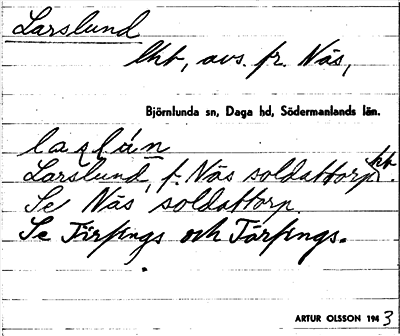 Larslund
lht, avs. fr. Näs,
Björnlunda sn, Daga hd, Södermanlands län.
Larslund, f. Näs soldattorp
Se Näs soldattorp
Se Färpings och Tärpings.
ARTUR OLSSON 1943